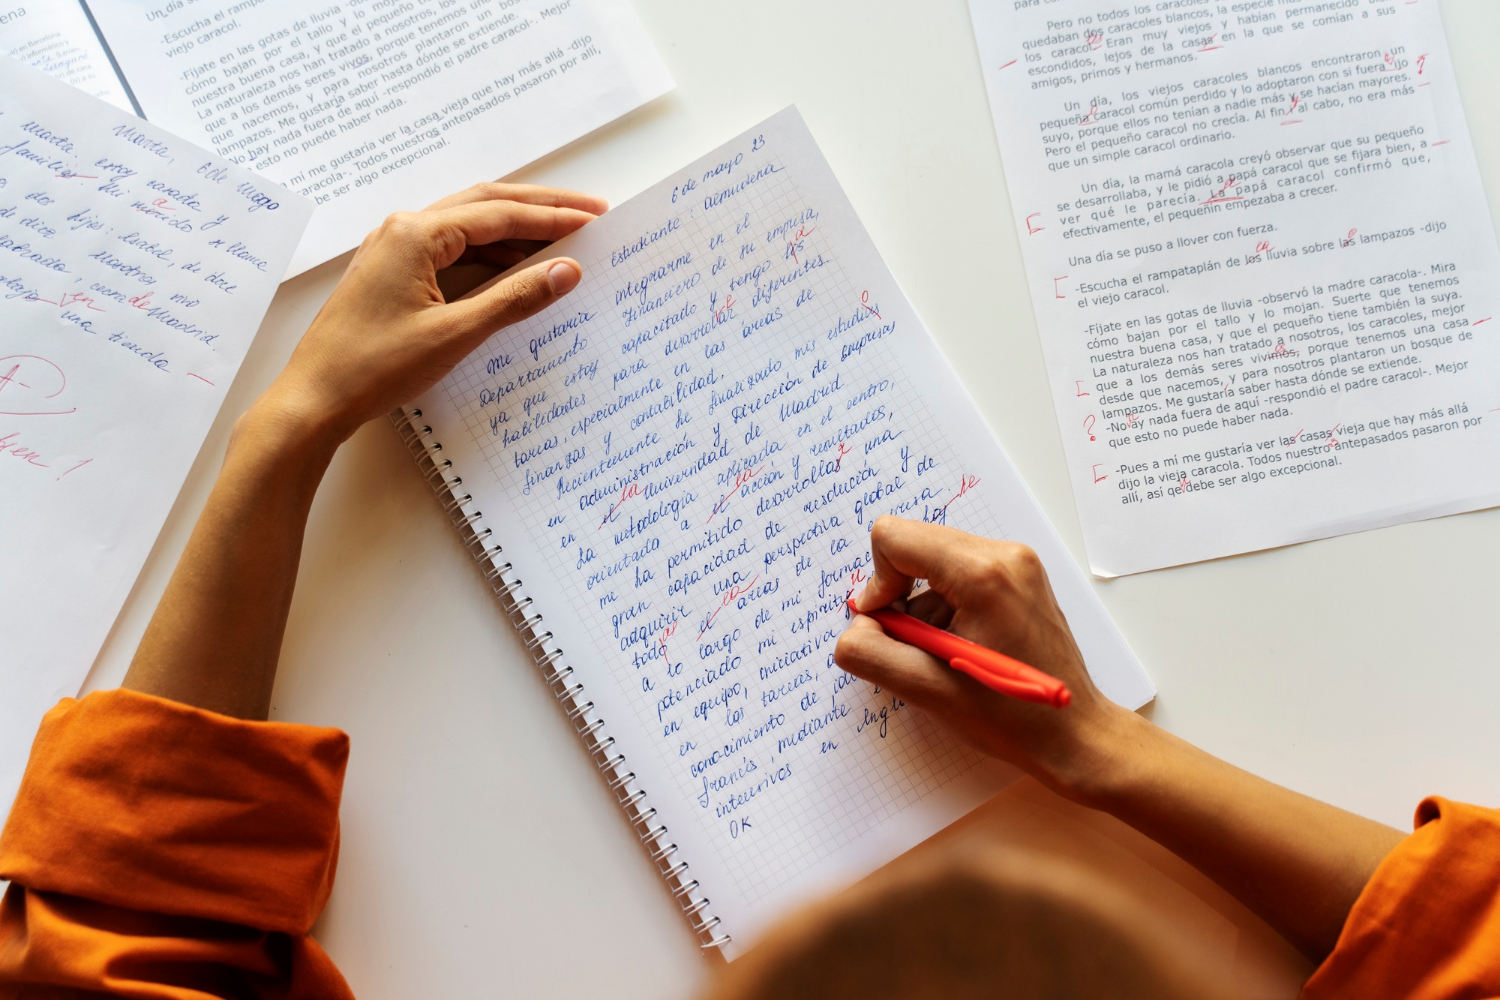 6 de mayo 23
Estudiante: Almudena
Me gustaría integrarme en el
Departamento Financiero de su empresa,
ya que estoy capacitado y tengo
habilidades para desarrollar diferentes
tareas, especialmente en las áreas de
finanzas y contabilidad.
Recientemente he finalizado mis estudios
en administración y Dirección de Empresas
en el Universidad de Madrid
la
La metodología aplicada en el centro,
orientada a el acción y resultados,
la
me ha permitido desarrollar una
gran capacidad de resolución y
adquirir una perspectiva global de
todo el áreas de la empresa.
a lo largo de mi
potenciado mi espíritu
en equipo, iniciativa
en las tareas,
conocimiento de
francés, mediante
intensivos en
OK
Un día se
-Escucha el
viejo caracol.
-Fíjate en las gotas de lluvia
cómo bajan por el tallo y lo
nuestra buena casa, y que el pequeño
La naturaleza nos han tratado a nosotros, los
que a los demás seres vivos, porque tenemos una
que nacemos, y para nosotros plantaron un
lampazos. Me gustaría saber hasta dónde se extiende.
No hay nada fuera de aquí -respondió el padre caracol-. Mejor
esto no puede haber nada.
a mí me gustaría ver la casa vieja que hay más allá -dijo
caracola-. Todos nuestros antepasados pasaron por allí,
be ser algo excepcional.
Marta, 6 de mayo
Marta, estoy casada y
familia. Mi marido se llama
dos hijos: Isabel, de doce
de diez
Nosotros no
cerca de Madrid.
en
una tienda
A-
Pero no todos los caracoles
quedaban dos caracoles blancos, la especie
los caracol. Eran muy viejos y habían permanecido
escondidos, lejos de la casas en la que se comían a sus
amigos, primos y hermanos.
Un día, los viejos caracoles blancos encontraron un
pequeña caracol común perdido y lo adoptaron con si fuera ijo
suyo, porque ellos no tenían a nadie más y se hacían mayores.
Pero el pequeño caracol no crecía. Al fin al cabo, no era más
que un simple caracol ordinario.
Un día, la mamá caracola creyó observar que su pequeño
se desarrollaba, y le pidió a papá caracol que se fijara bien, a
ver qué le parecía. La papá caracol confirmó que,
efectivamente, el pequeñin empezaba a crecer.
Una día se puso a llover con fuerza.
-Escucha el rampataplán de los lluvia sobre las lampazos -dijo
el viejo caracol.
-Fíjate en las gotas de lluvia -observó la madre caracola-. Mira
cómo bajan por el tallo y lo mojan. Suerte que tenemos
nuestra buena casa, y que el pequeño tiene también la suya.
La naturaleza nos han tratado a nosotros, los caracoles, mejor
que a los demás seres vivimos, porque tenemos una casa
desde que nacemos, y para nosotros plantaron un bosque de
lampazos. Me gustaría saber hasta dónde se extiende.
nada fuera de aquí -respondió el padre caracol-. Mejor
que esto no puede haber nada.
-Pues a mí me gustaría ver las casas vieja que hay más allá
dijo la vieja caracola. Todos nuestro antepasados pasaron por
allí, así qe debe ser algo excepcional.